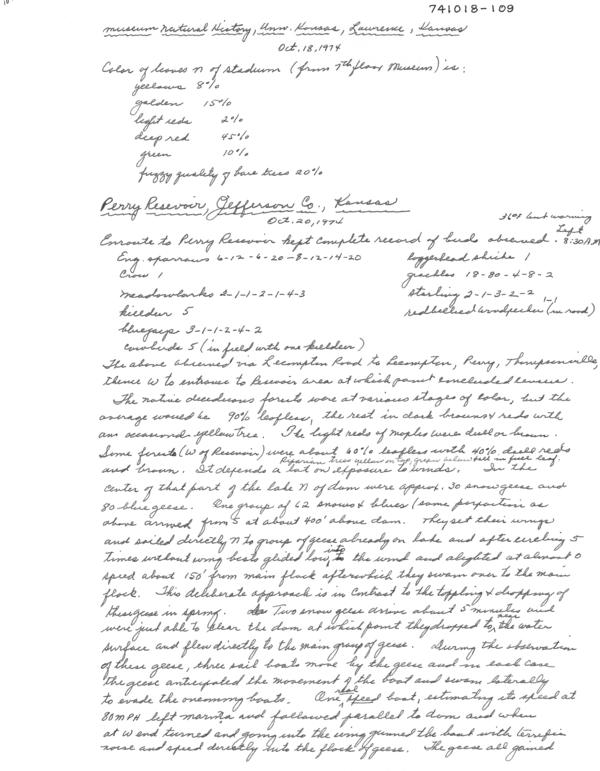 741018-109
Museum Natural History, Univ. Kansas, Lawrence, Kansas
Oct. 18, 1974
Color of leaves N of Stadium (from 7th floor Museum) is:
yellows 8%
golden 15%
light reds 2%
deep red 45%
green 10%
fuzzy quality of bare trees 20%
Perry Reservoir, Jefferson Co., Kansas
Oct. 20, 1974
36°F but warming
Left
Enroute to Perry Reservoir kept complete record of birds observed. 8:30 A.M
Eng. sparrows 6-12-6-20-8-12-14-20
loggerhead shrike 1
Crow 1
grackles 18-80-4-8-2
meadowlarks 2-1-1-2-1-4-3
starling 2-1-3-2-2
killdeer 5
redbellied woodpecker (in road) 1-1
bluejays 3-1-1-2-4-2
cowbirds 5 (in field with one killdeer)
The above observed via Lecompton Road to Lecompton, Perry, Thompsonville,
thence W to entrance to Reservoir area at which point concluded census.
The native deciduous forests were at various stages of color, but the
average would be 90% leafless, the rest in dark browns & reds with
an occasional yellow tree. The light reds of maples were dull or brown.
Some forests (W of Reservoir) were about 60% leafless with 40% dull reds
Riparian trees yellow on top, green below but in full leaf.
and brown. It depends a lot on exposure to winds. In the
center of that part of the lake N of dam were approx. 30 snow geese and
80 blue geese. One group of 62 snows & blues (same proportion as
above arrived from S at about 400' above dam. They set their wings
and sailed directly N to group of geese already on lake and after circling 5
times without wing beats glided low into the wind and alighted at almost 0
speed about 150' from main flock after which they swam over to the main
flock. This deliberate approach is in contrast to the toppling & dropping of
these geese in spring. Two snow geese arrive about 5 minutes and
were just able to clear the dam at which point they dropped to near the water
surface and flew directly to the main group of geese. During the observation
of these geese, three sail boats move by the geese and in each case
the geese anticipated the movement of the boat and swam laterally
to evade the oncoming boats. One real speed boat, estimating its speed at
80 MPH left marina and followed parallel to dam and when
at W end turned and going into the wing gunned the boat with terrific
noise and speed directly into the flock of geese. The geese all gained